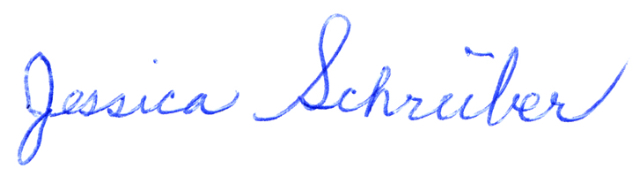 Jessica Schreiber